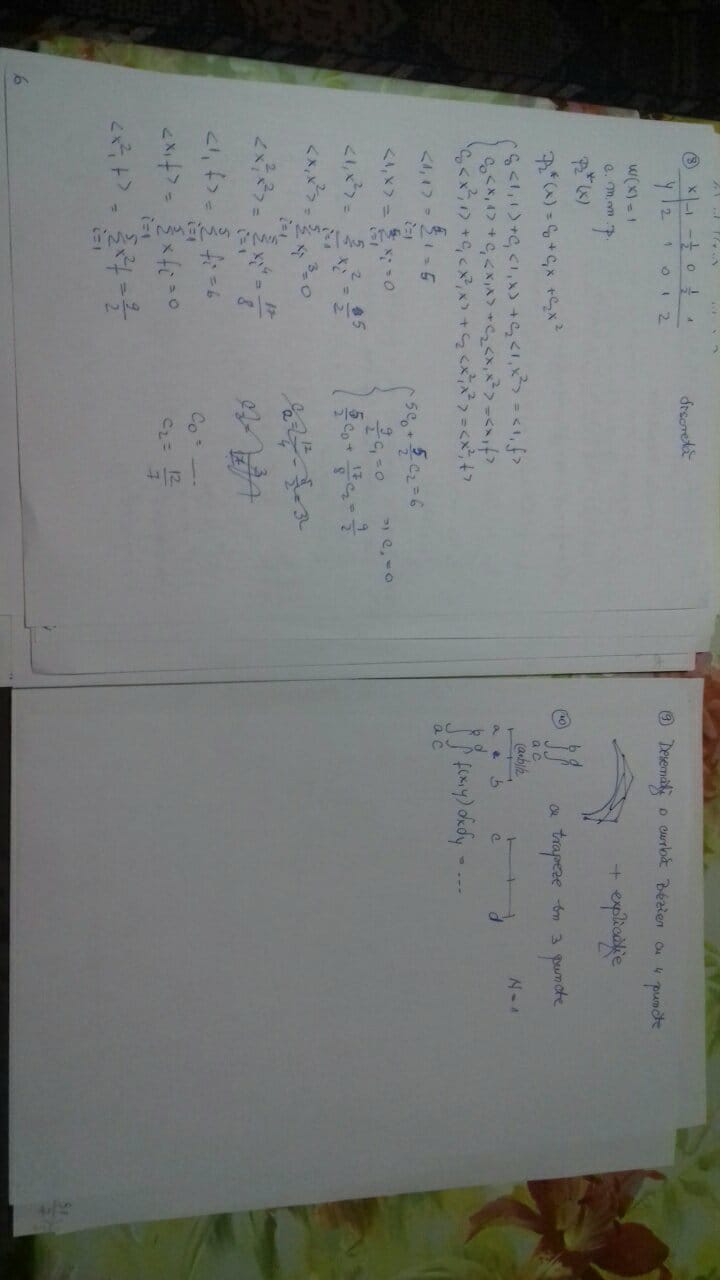 ⑧ x | -1 -1/2 0 1/2 1
y | 2 1 0 1 2
discretă
w(x)=1
a.m.m.p.
p₂*(x)
p₂*(x) = c₀ + c₁x + c₂x²
{ c₀<1,1> + c₁<1,x> + c₂<1,x²> = <1,f>
c₀<x,1> + c₁<x,x> + c₂<x,x²> = <x,f>
c₀<x²,1> + c₁<x²,x> + c₂<x²,x²> = <x²,f>
<1,1> = Σᵢ₌₁⁵ 1 = 5
<1,x> = Σᵢ₌₁⁵ xᵢ = 0
<1,x²> = Σᵢ₌₁⁵ xᵢ² = 5/2
<x,x²> = Σᵢ₌₁⁵ xᵢ³ = 0
<x²,x²> = Σᵢ₌₁⁵ xᵢ⁴ = 17/8
<1,f> = Σᵢ₌₁⁵ fᵢ = 6
<x,f> = Σᵢ₌₁⁵ x fᵢ = 0
<x²,f> = Σᵢ₌₁⁵ x²f = 9/2
{ 5c₀ + 5/2 c₂ = 6
9/2 c₁ = 0 => c₁ = 0
5/2 c₀ + 17/8 c₂ = 9/2
c₀ = ...
c₂ = 12/7
6
⑨ Desenați o curbă Bézier cu 4 puncte
+ explicație
⑩ ∫ₐᵇ∫꜀ᵈ cu trapeze în 3 puncte
(a+b)/2
a b c d N=1
∫ₐᵇ∫꜀ᵈ f(x,y) dxdy = ...